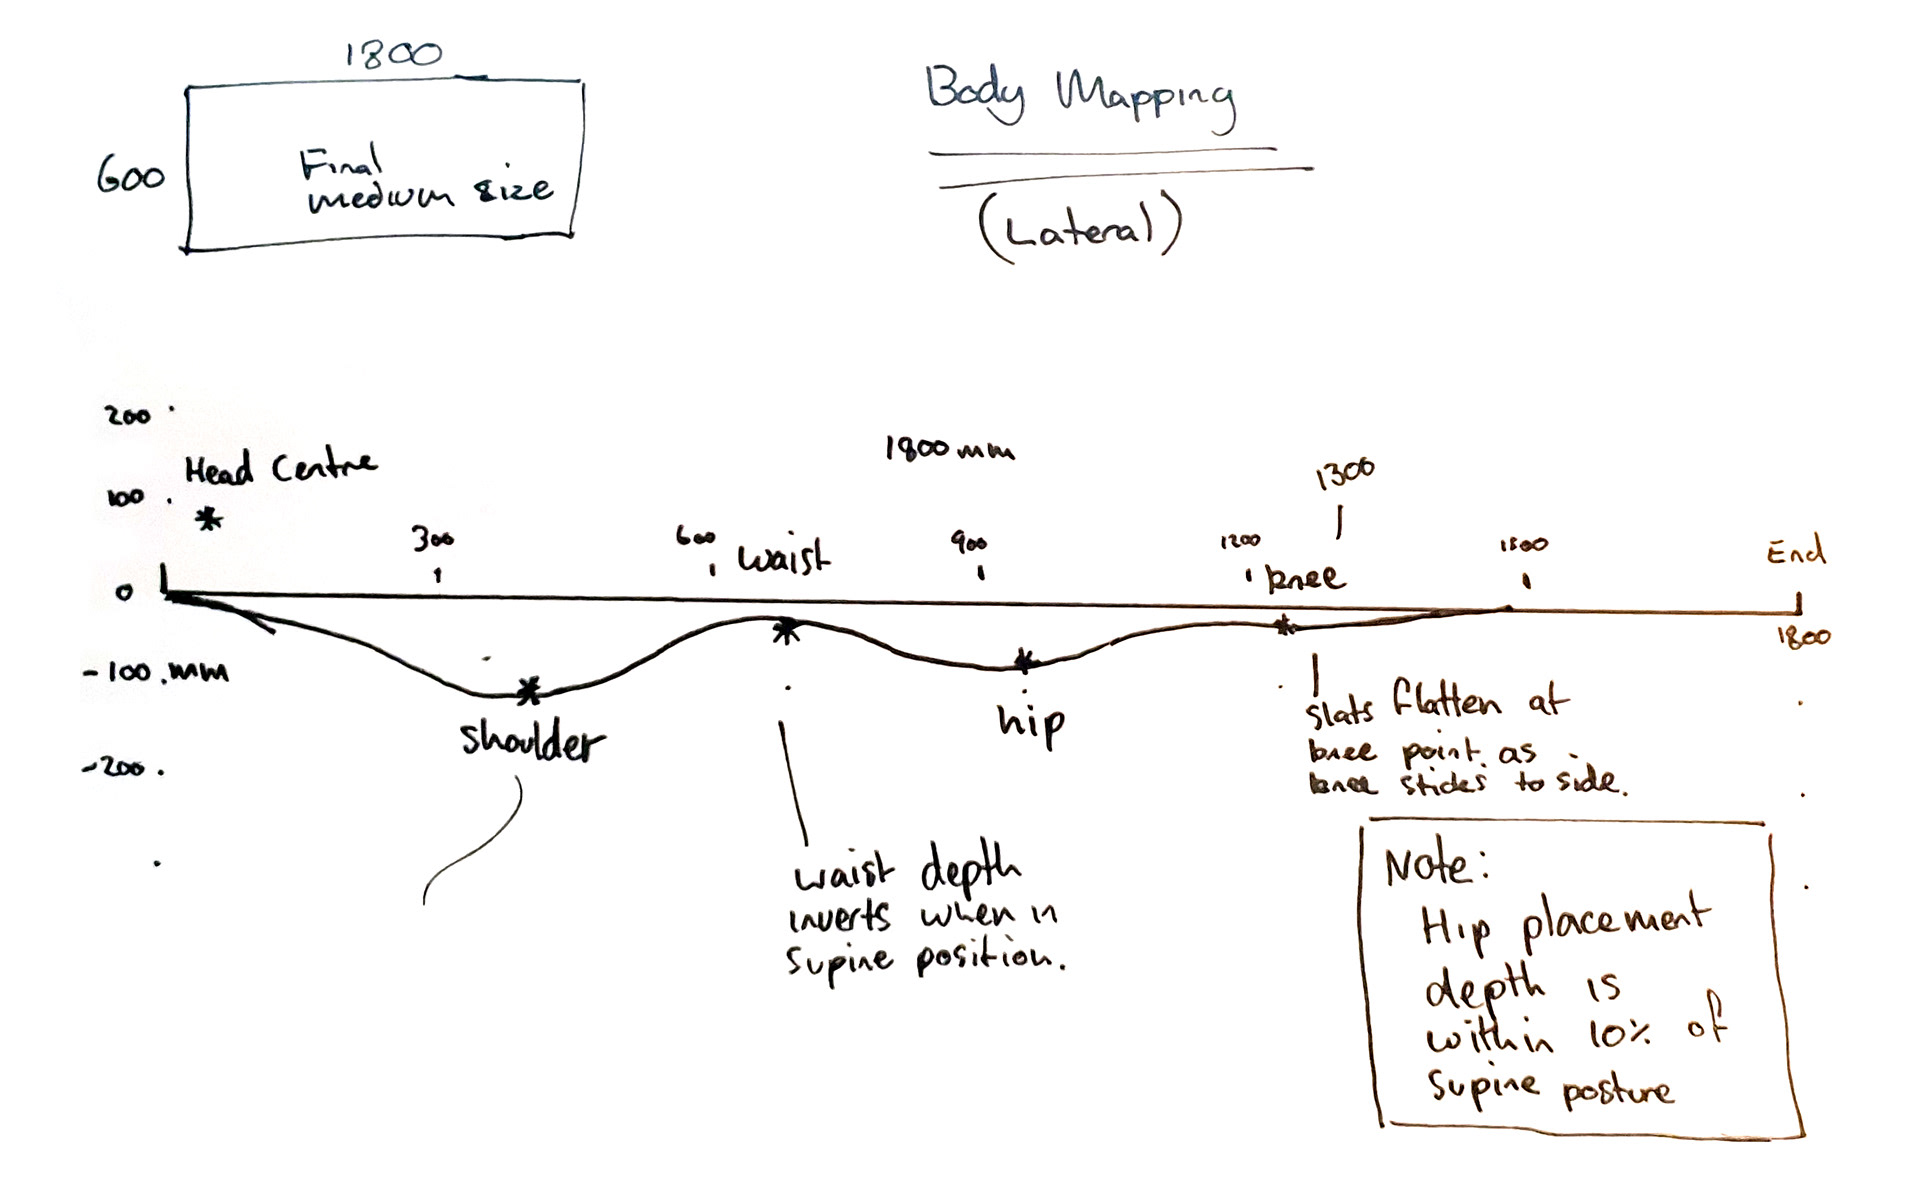 1800
600
Final
medium size
Body Mapping
(Lateral)
200
Head Centre
100
1800 mm
1300
300
600
waist
900
1200
knee
1500
End
0
1800
-100 mm
shoulder
hip
-200
slats flatten at
knee point as
knee sticks to side.
waist depth
inverts when in
supine position.
Note:
Hip placement
depth is
within 10% of
supine posture